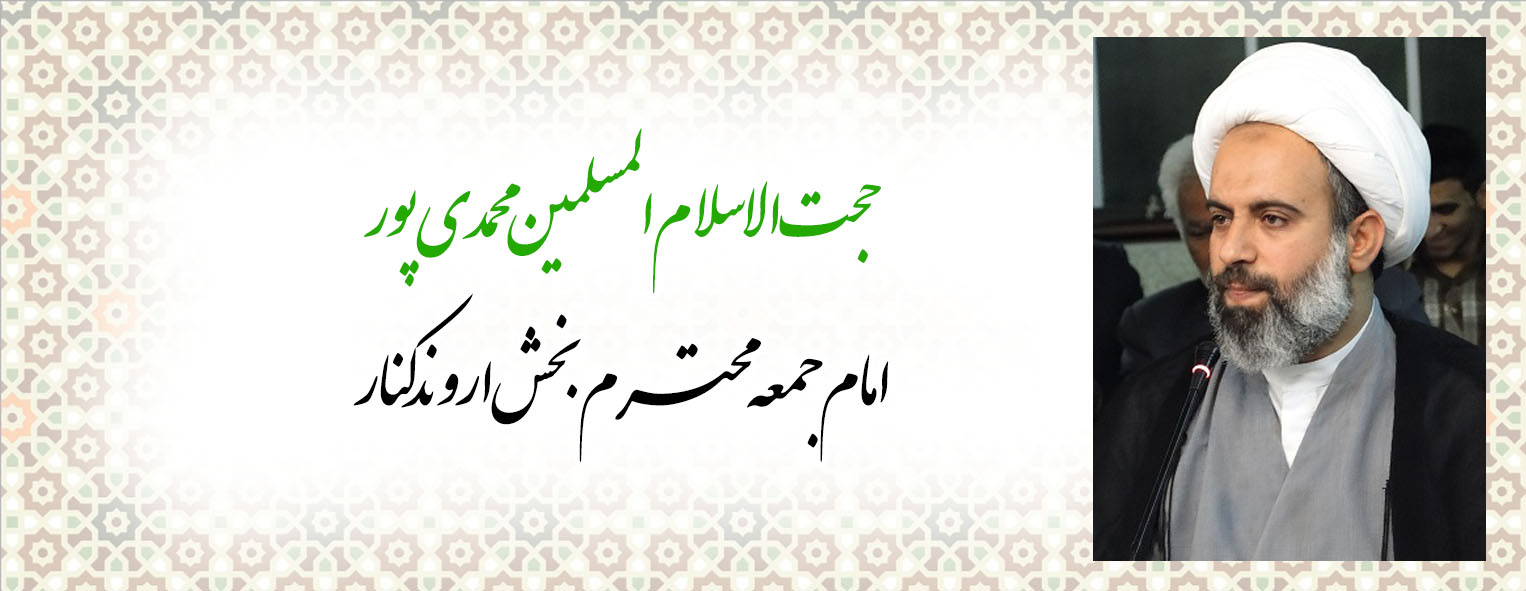 حجت الاسلام المسلمین محمدی پور
امام جمعه محترم بخش اروندکنار